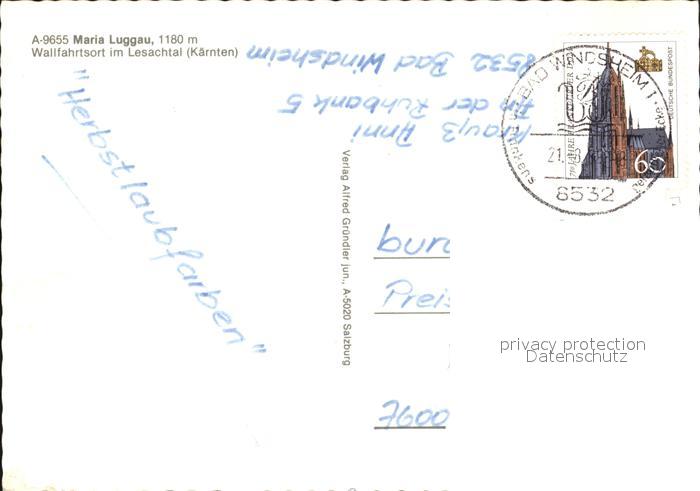 A-9655 Maria Luggau, 1180 m
Wallfahrtsort im Lesachtal (Kärnten)
"Herbstlaubfarben"
Krauß Anni
An der Ruhbank 5
8532 Bad Windsheim
Verlag Alfred Gründler jun., A-5020 Salzburg
BAD WINDSHEIM 1
21.
8532
DEUTSCHE BUNDESPOST
60
bun
Preis
7600
privacy protection
Datenschutz